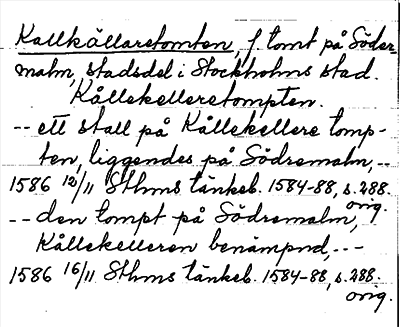 Kallkällaretomten, f. tomt på Söder-
malm, stadsdel i Stockholms stad.
Kållekelleretompten.
-- ett stall på Kållekellere tomp-
ten, liggendes på Södremalm, --
1586 12/11 Sthms tänkeb. 1584-88, s. 288.
orig.
-- den tompt på Södremalm,
Kållekelleren benämpnd, --
1586 16/11 Sthms tänkeb. 1584-88, s. 288.
orig.